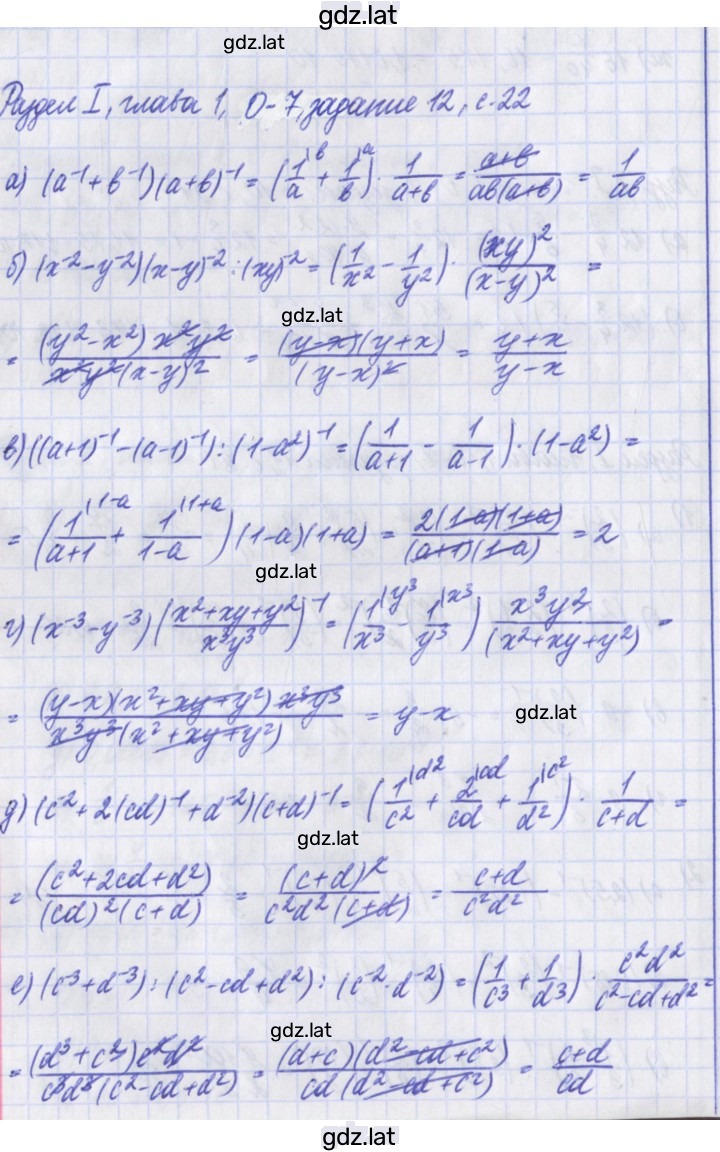 gdz.lat
gdz.lat
Раздел I, глава 1, О-7, задание 12, с. 22
а) (a⁻¹+b⁻¹)(a+b)⁻¹ = (1/a |b + 1/b |a) · 1/(a+b) = (a+b)/(ab(a+b)) = 1/(ab)
б) (x⁻²-y⁻²)(x-y)⁻² : (xy)⁻² = (1/x² - 1/y²) · (xy)²/(x-y)² =
gdz.lat
= ((y²-x²) x²y²)/(x²y²(x-y)²) = ((y-x)(y+x))/((y-x)²) = (y+x)/(y-x)
в) ((a+1)⁻¹-(a-1)⁻¹) : (1-a²)⁻¹ = (1/(a+1) - 1/(a-1)) · (1-a²) =
= (1/(a+1) |1-a + 1/(1-a) |1+a) (1-a)(1+a) = (2(1-a)(1+a))/((a+1)(1-a)) = 2
gdz.lat
г) (x⁻³-y⁻³)((x²+xy+y²)/(x³y³))⁻¹ = (1/x³ |y³ - 1/y³ |x³) (x³y³)/(x²+xy+y²) =
= ((y-x)(x²+xy+y²) x³y³)/(x³y³(x²+xy+y²)) = y-x
gdz.lat
д) (c⁻²+2(cd)⁻¹+d⁻²)(c+d)⁻¹ = (1/c² |d² + 2/(cd) |cd + 1/d² |c²) · 1/(c+d) =
gdz.lat
= (c²+2cd+d²)/((cd)²(c+d)) = (c+d)²/(c²d²(c+d)) = (c+d)/(c²d²)
е) (c³+d⁻³) : (c²-cd+d²) : (c⁻²·d⁻²) = (1/c³ + 1/d³) · (c²d²)/(c²-cd+d²) =
gdz.lat
= ((d³+c³)c²d²)/(c³d³(c²-cd+d²)) = ((d+c)(d²-cd+c²))/(cd(d²-cd+c²)) = (c+d)/(cd)
gdz.lat